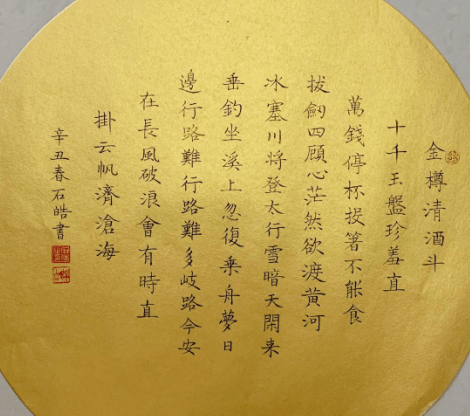 金樽清酒斗
十千玉盤珍羞直
萬錢停杯投箸不能食
拔劍四顧心茫然欲渡黃河
冰塞川將登太行雪暗天閒来
垂釣坐溪上忽復乘舟夢日
邊行路難行路難多岐路今安
在長風破浪會有時直
掛云帆濟滄海
辛丑春石皓書